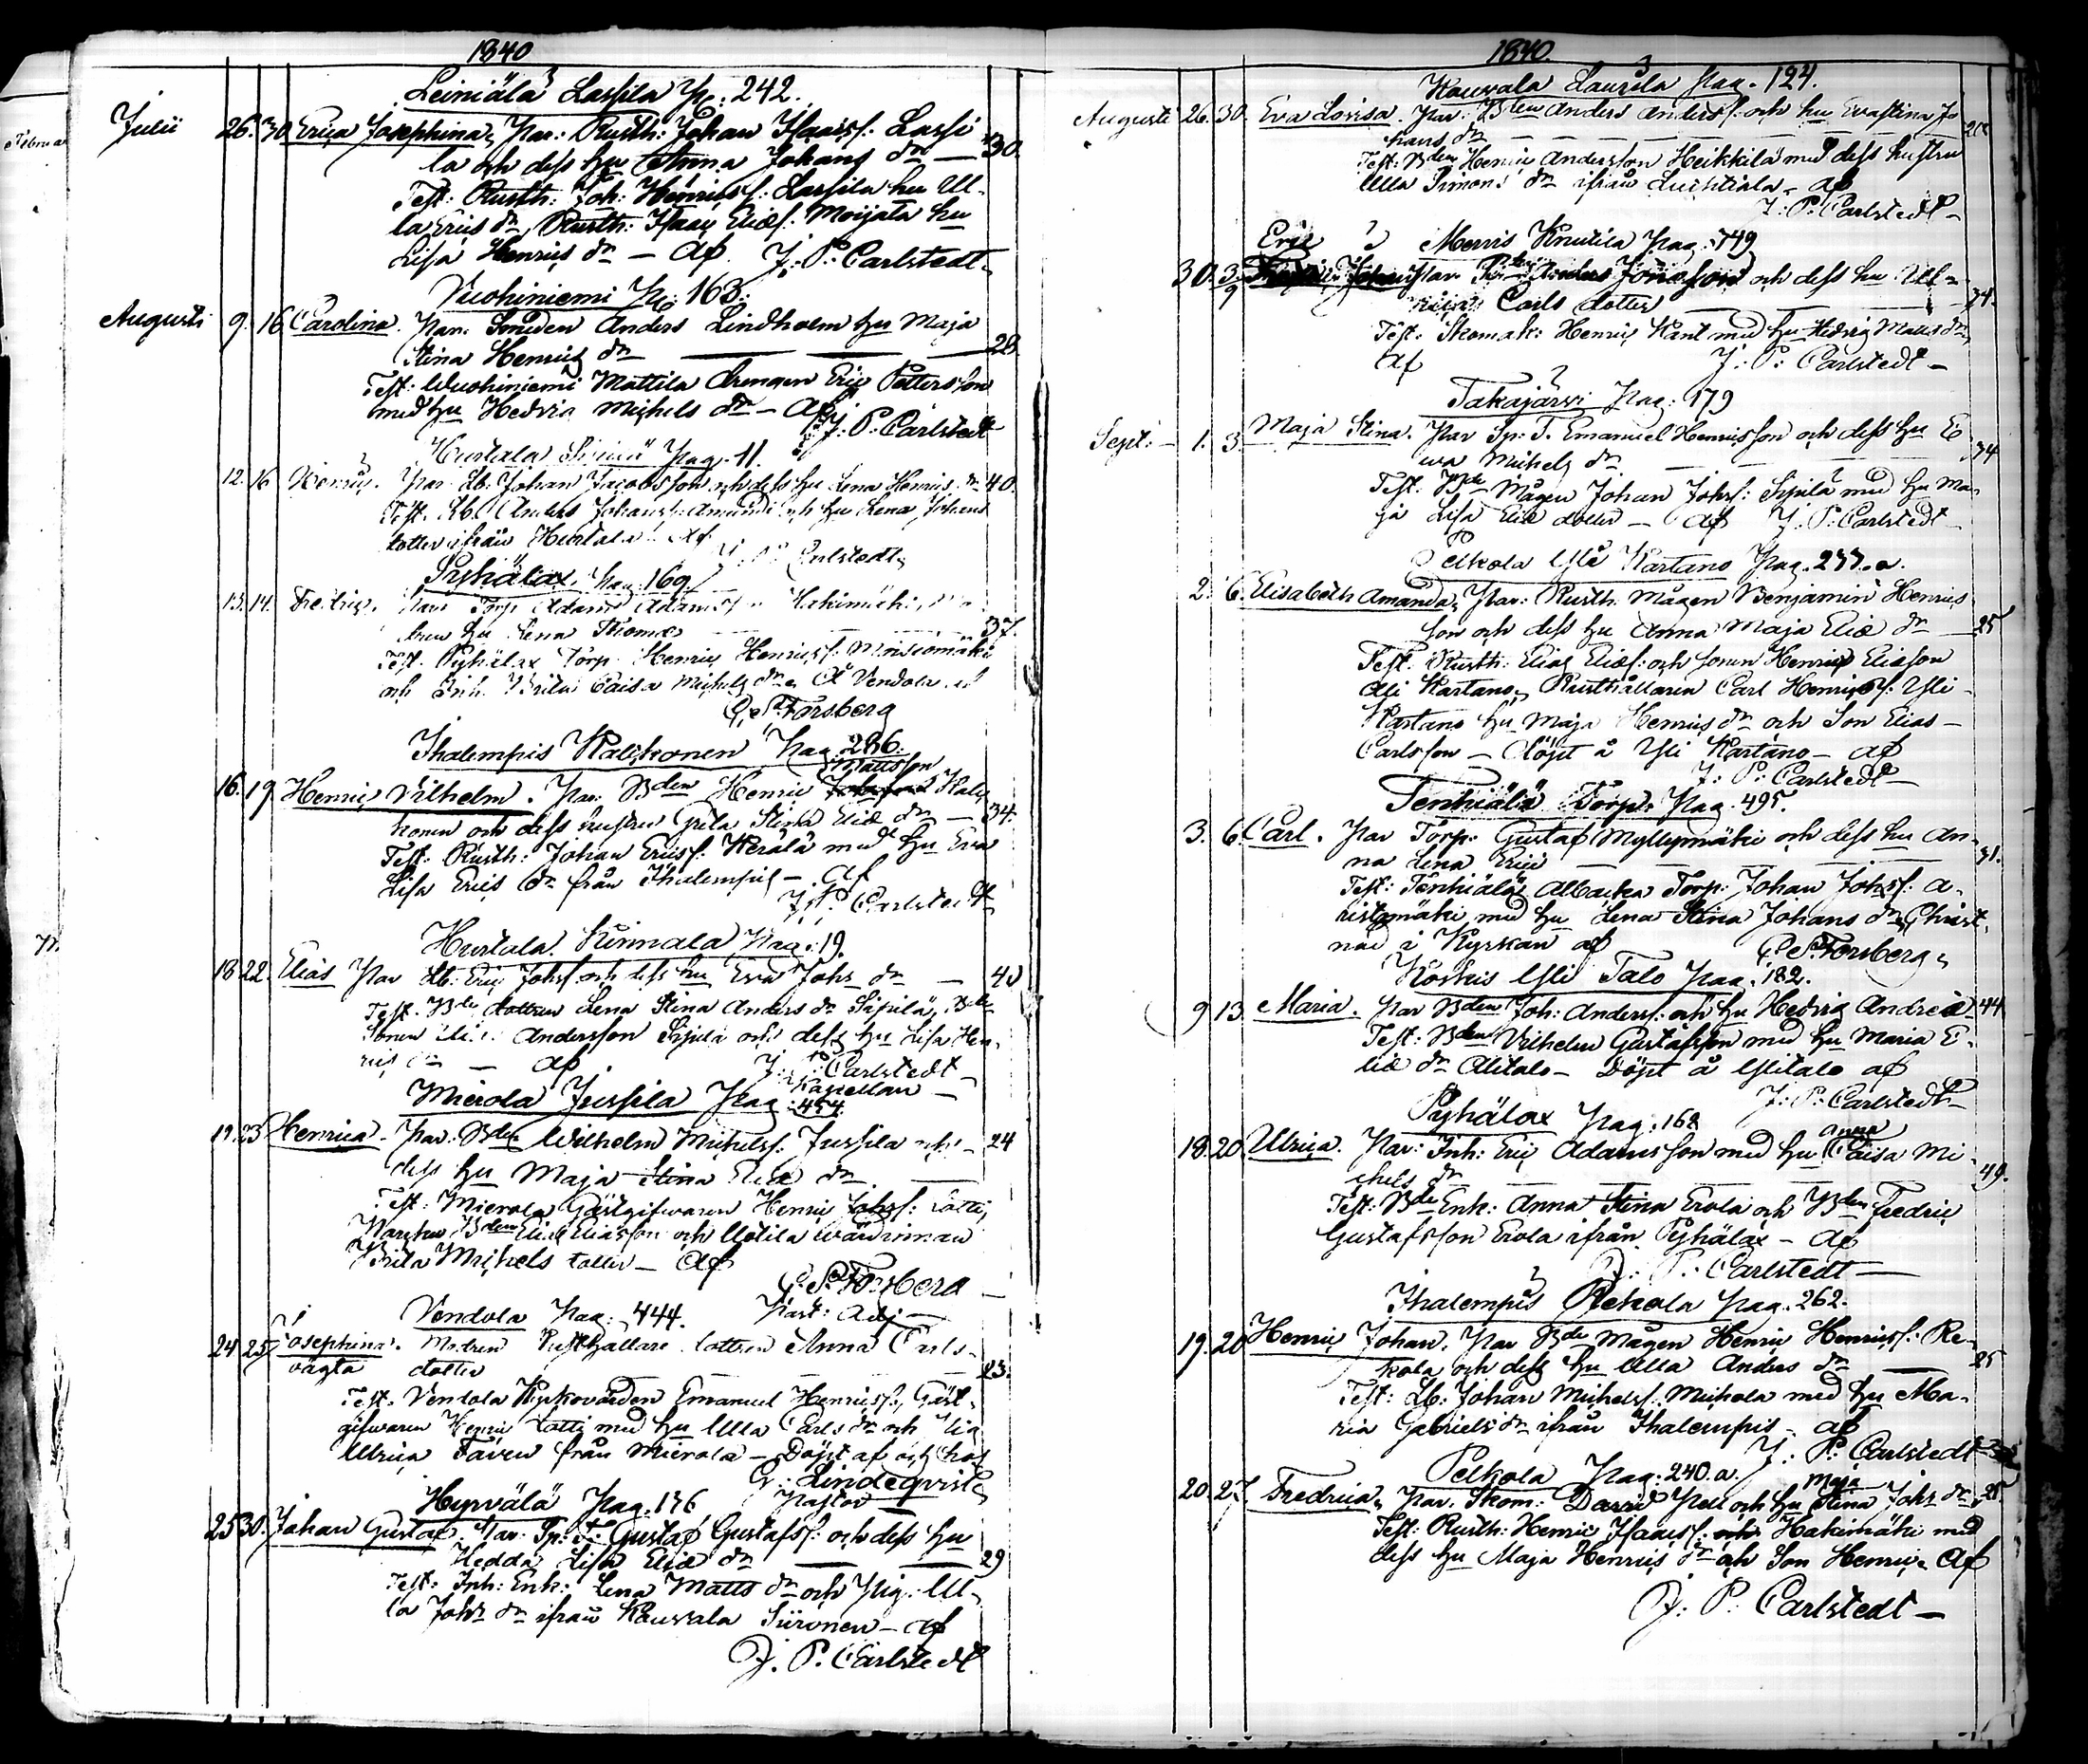 1840
Leiniälä Lassila Pg: 242.
Julii 26. 30. Erica Josephina, Par: Rusth: Johan Isacss: Lassi
la och dess hu Anna Johans dr — 30.
Test: Rusth: Joh: Henricss: Lassila hu Ul-
la Erics dr, Rusth: Isaac Eliæs: Moijala hu
Lisa Henrics dr — Af. J: P: Carlstedt
Vuohiniemi Pg: 163:
Augusti 9. 16 Carolina. Par: Smeden Anders Lindholm hu Maja
Stina Henrics dr 28
Test: Wuohiniemi Mattila drengen Eric Pettersson
med hu Hedvig Michels dr — Af
J: P: Carlstedt
Hurtala Pag. 11.
12. 16 Henric. Par. Lb. Johan Jacobsson och dess hu Lena Henrics dr 40.
Test. Rb. Anders Johanss: och hu Lena Johans
dotter ifrån Hurtala. Af
J. P. Carlstedt
Pyhälax. Pag: 169
13. 14. Fredric. Par: Torp. Adam Adamsson Hakimäki,
hu Lena Thomæ 37.
Test. Pyhälax Torp. Henric Henricss:
och Inh. Brita Caisa Michels dr, Vendola. af
C. P. Forsberg
Ihalempis Kalckonen Pag. 286:
Mattsson
16. 19 Henric Vilhelm. Par: Bden Henric Kalc
konen och dess hustru Greta Stina Eliæ dr — 34.
Test: Rusth: Johan Ericss: Kerälä med hu Eva
Lisa Erics dr från Ihalempis — af
J. P. Carlstedt
Hurtala. Kinnala Pag: 19.
18 22. Elias Par Lb: Eric Johss. och dess hu Eva Johs dr — 40
Test. Bde dottren Lena Stina Anders dr Sipilä, Bde
Sonen Andersson Sipilä och dess hu Lisa Hen-
rics dr — af J: P: Carlstedt
Kapellan —
Mierola Jussila Pag: 454.
19. 23 Henrica. Par: Bden Wilhelm Michelss: Jussila och — 24
dess hu Maja Stina Eliæ dr
Test: Mierola Gästgifwaren Henric Johss: Totti,
Bden Elias Eliasson och Uotila wärdinnan
Brita Michels dotter — Af
C. P. Forsberg
Past: Adj
Vendola Pag: 444.
24 25 Josephina. Modren Rusthållare dottren Anna Carls-
oägta dotter 23.
Test. Vendola Kyrkovärden Emanuel Henricss:, Gäst-
gifwaren Henric Totti med hu Ulla Carls dr och Pig
Ulrica Favén från Mierola — Döpt af
G: Lindeqvist
Pastor
Hyrvälä Pag. 176
25 30. Johan Gustaf. Par: Sp: T: Gustaf Gustafss: och dess hu
Hedda Lisa Eliæ dr 29
Test: Inh: Enk: Lena Matts dr och Pig: Ul-
la Johs dr ifrån Kauvala Siironen — af
J. P. Carlstedt
1840.
Kauvala Laurila Pag. 124.
Augusti 26. 30. Eva Lovisa. Par: Bden Anders Anderss: och hu Evastina Jo
hans dr
Test: Bden Henric Andersson Heikkilä med dess hustru
Ulla Simons dr ifrån Luhtiala — af
J: P: Carlstedt —
Eric Merris Knutila Pag: 749
30. 3/9 Par. och dess hu Ul-
Carls dotter 34.
Test: Skomak: Henric Kant med hu Hedvig Matts dr,
af J: P: Carlstedt —
Takajärvi Pag: 179
Sept: — 1. 3. Maja Stina. Par Sp: T. Emanuel Henricsson och dess hu E
va Michels dr 34
Test: Bde Mågen Johan Johss: Sipilä med hu Ma-
ja Lisa Eliæ dotter — af J: P: Carlstedt
Pelkola Yli Kartano Pag. 237.a.
2. 6. Elisabeth Amanda, Par: Rusth: Mågen Benjamin Henrics
son och dess hu Anna Maja Eliæ dr 25
Test: Rusth: Elias Eliæs: och sonen Henric Eliasson
Ali Kartano, Rusthållaren Carl Henricss: Yli-
Kartano hu Maja Henrics dr och Son Elias
Carlsson — Döpt å Yli Kartano — af
J: P: Carlstedt
Tenhiälä Torp: Pag. 495.
3. 6. Carl. Par Torp: Gustaf Myllymäki och dess hu An-
na Lena Erici 31.
Test: Tenhiälä Torp: Johan Johss: A-
ristomäki, med hu Lena Stina Johans dr, Christ-
nad i Kyrkan af C. P. Forsberg
Koskis Yli Talo Pag. 182.
9 13. Maria. Par Bden Joh: Anderss: och hu Hedvig Andreæ 44
Test: Bden Vilhelm Gustafsson med hu Maria E-
liæ dr Alitalo — Döpt å Ylitalo af
J: P: Carlstedt
Pyhälax Pag: 168
Anna
18. 20. Ulrica. Par: Inh: Eric Adamsson med hu Caisa Mi-
chels dr 49.
Test: Bde Enk: Anna Stina Erola och Bden Fredric
Gustafsson Erola ifrån Pyhälax — Af
J: P: Carlstedt —
Ihalempis Rekola Pag. 262.
19. 20 Henric Johan. Par Bde Mågen Henric Henricss: Re-
kola och dess hu Ulla Anders dr 25
Test: Lb: Johan Michelss. Michola med hu Ma-
ria Gabriels dr ifrån Ihalempis — af
J: P: Carlstedt
Pelkola Pag: 240.a.
Maja
20. 27. Fredrica, Par. Skom: David Pell och hu Stina Johs dr 25
Test: Rusth: Henric Isacss: Hakimäki med
dess hu Maja Henrics dr och Son Henric — af
J: P: Carlstedt —